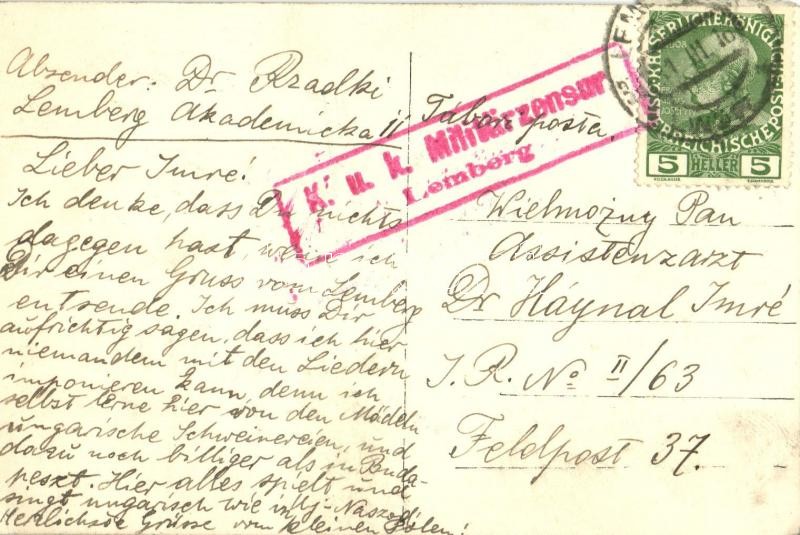 Absender: Dr Rzadki
Lemberg Akademicka 11
Lieber Imré!
Ich denke, dass Du nichts
dagegen hast, wenn ich
Dir einen Gruss vom Lemberg
entsende. Ich muss Dir
aufrichtig sagen, dass ich hier
niemandem mit den Liedern
imponieren kann, denn ich
selbst lerne hier von den Mädeln
ungarische Schweinereien, und
dazu noch billiger als in Buda-
pest. Hier alles spielt und
singt ungarisch wie in Uj-Naszód!
Herzlichste Grüsse vom kleinen Polen!
K. u. k. Militärzensur
Lemberg
Tábori posta
KAISERLICHE KÖNIGLICHE
ÖSTERREICHISCHE POST
5 HELLER 5
Wielmożny Pan
Assistenzarzt
Dr Háynal Imré
I. R. No II/63
Feldpost 37.